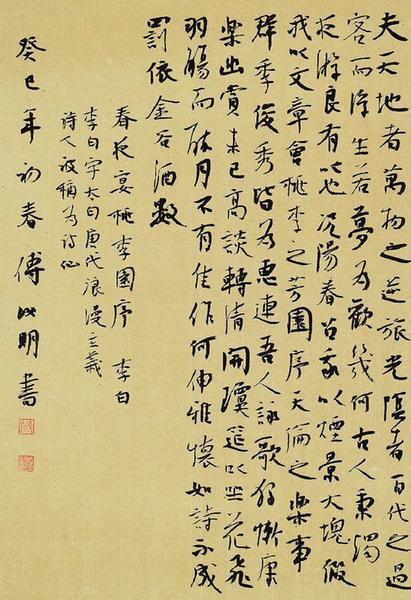 夫天地者萬物之逆旅光陰者百代之過
客而浮生若夢為歡幾何古人秉燭
夜游良有以也况陽春召我以煙景大塊假
我以文章會桃李之芳園序天倫之樂事
群季俊秀皆為惠連吾人詠歌獨慚康
樂幽賞未已高談轉清開瓊筵以坐花飛
羽觴而醉月不有佳作何伸雅懷如詩不成
罰依金谷酒數
春夜宴桃李園序 李白
李白字太白唐代浪漫主義
詩人被稱為詩仙
癸巳年初春傅以明書